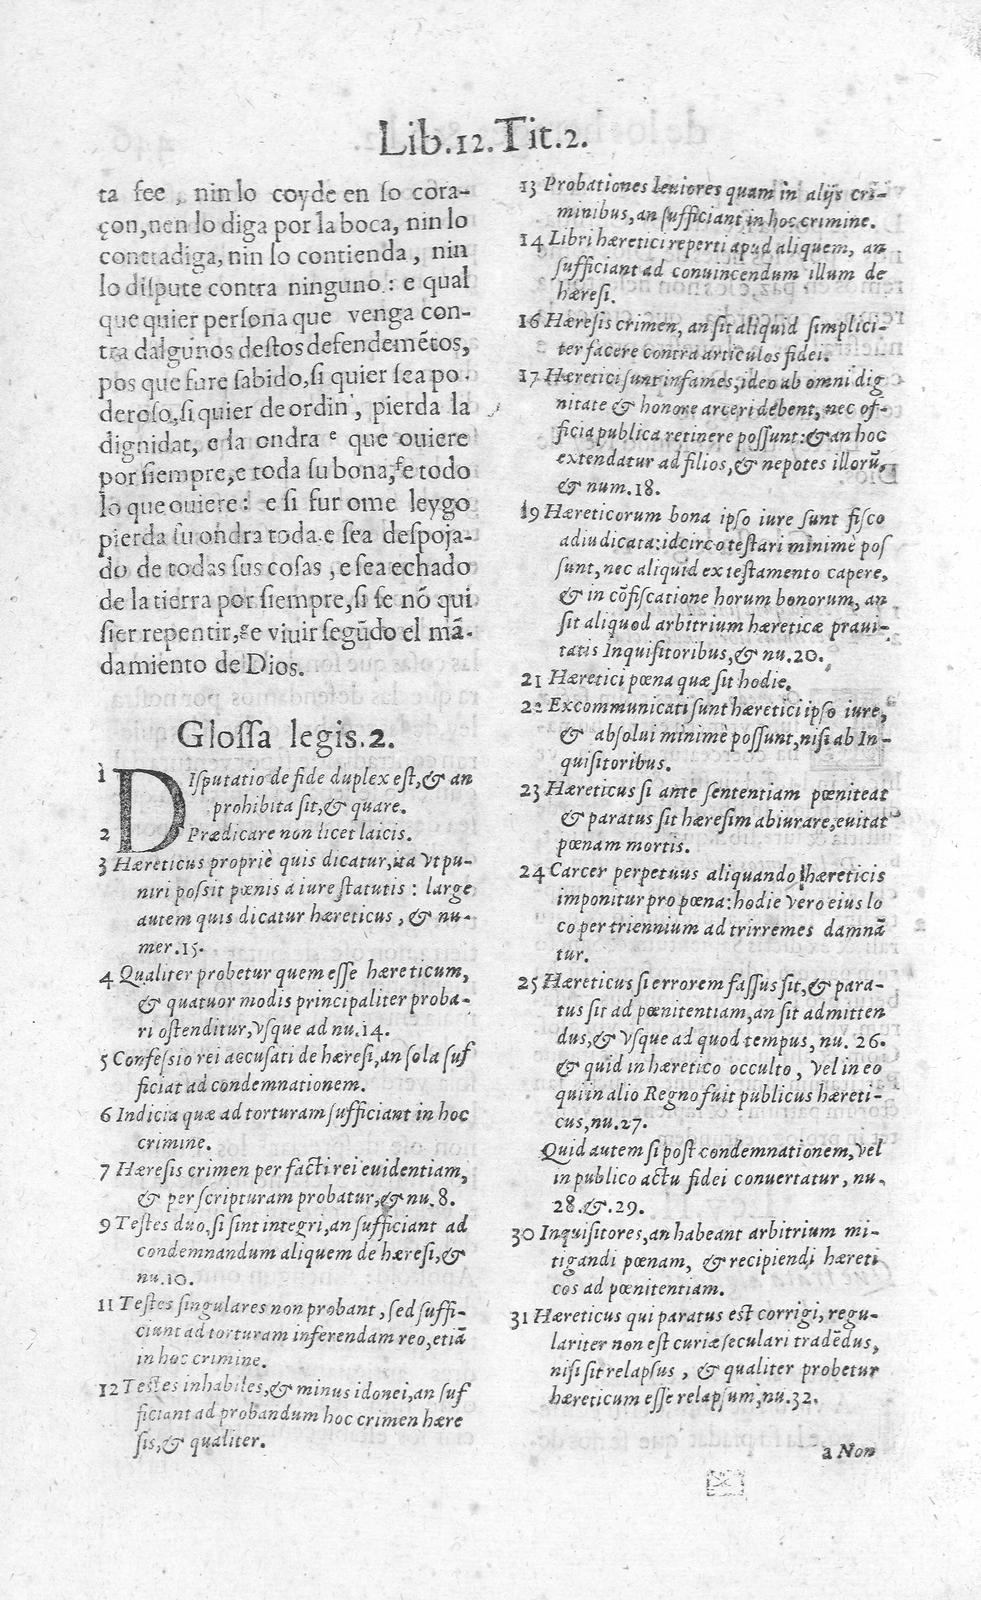 Lib.12.Tit.2.
ta fee, nin lo coyde en ſo cora-
çon,nen lo diga por la boca, nin lo
contradiga, nin lo contienda, nin
lo diſpute contra ninguno: e qual
que quier perſona que venga con-
tra dalgunos deſtos defendemẽtos,
pos que fure ſabido,ſi quier ſea po-
deroſo,ſi quier de ordin, pierda la
dignidat, e la ondra e que ouiere
por ſiempre,e toda ſu bona,f e todo
lo que ouiere: e ſi fur ome leygo
pierda ſu ondra toda.e ſea deſpoja-
do de todas ſus coſas, e ſea echado
de la tierra por ſiempre,ſi ſe nõ qui
ſier repentir,g e viuir ſegũdo el mã-
damiento de Dios.
Gloſſa legis.2.
1 DIſputatio de fide duplex eſt,& an
prohibita ſit,& quare.
2 Prædicare non licet laicis.
3 Hæreticus propriè quis dicatur,ita vt pu-
niri poſſit pœnis à iure ſtatutis: large
autem quis dicatur hæreticus, & nu-
mer.15.
4 Qualiter probetur quem eſſe hæreticum,
& quatuor modis principaliter proba-
ri oſtenditur,vſque ad nu.14.
5 Confeſsio rei accuſati de hæreſi,an ſola ſuf
ficiat ad condemnationem.
6 Indicia quæ ad torturam ſufficiant in hoc
crimine.
7 Hæreſis crimen per facti rei euidentiam,
& per ſcripturam probatur,& nu.8.
9 Teſtes duo,ſi ſint integri,an ſufficiant ad
condemnandum aliquem de hæreſi,&
nu.10.
11 Teſtes ſingulares non probant, ſed ſuffi-
ciunt ad torturam inferendam reo,etiã
in hoc crimine.
12 Teſtes inhabiles,& minus idonei,an ſuf
ficiant ad probandum hoc crimen hære
ſis,& qualiter.
13 Probationes leuiores quam in alijs cri-
minibus,an ſufficiant in hoc crimine.
14 Libri hæretici reperti apud aliquem, an
ſufficiant ad conuincendum illum de
hæreſi.
16 Hæreſis crimen, an ſit aliquid ſimplici-
ter facere contra articulos fidei.
17 Hæretici ſunt infames,ideo ab omni dig
nitate & honore arceri debent, nec of-
ficia publica retinere poſſunt:& an hoc
extendatur ad filios,& nepotes illorũ,
& num.18.
19 Hæreticorum bona ipſo iure ſunt fiſco
adiudicata:idcirco teſtari minimè poſ
ſunt, nec aliquid ex teſtamento capere,
& in cõfiſcatione horum bonorum, an
ſit aliquod arbitrium hæreticæ praui-
tatis Inquiſitoribus,& nu.20.
21 Hæretici pœna quæ ſit hodie.
22 Excommunicati ſunt hæretici ipſo iure,
& abſolui minimè poſſunt,niſi ab In-
quiſitoribus.
23 Hæreticus ſi ante ſententiam pœniteat
& paratus ſit hæreſim abiurare,euitat
pœnam mortis.
24 Carcer perpetuus aliquando hæreticis
imponitur pro pœna:hodie vero eius lo
co per triennium ad trirremes damnã
tur.
25 Hæreticus ſi errorem faſſus ſit,& para-
tus ſit ad pœnitentiam,an ſit admitten
dus,& vſque ad quod tempus, nu. 26.
& quid in hæretico occulto, vel in eo
qui in alio Regno fuit publicus hæreti-
cus,nu.27.
Quid autem ſi poſt condemnationem,vel
in publico actu fidei conuertatur, nu.
28.&.29.
30 Inquiſitores,an habeant arbitrium mi-
tigandi pœnam, & recipiendi hæreti
cos ad pœnitentiam.
31 Hæreticus qui paratus eſt corrigi,regu-
lariter non eſt curiæ ſeculari tradẽdus,
niſi ſit relapſus, & qualiter probetur
hæreticum eſſe relapſum,nu.32.
a Non